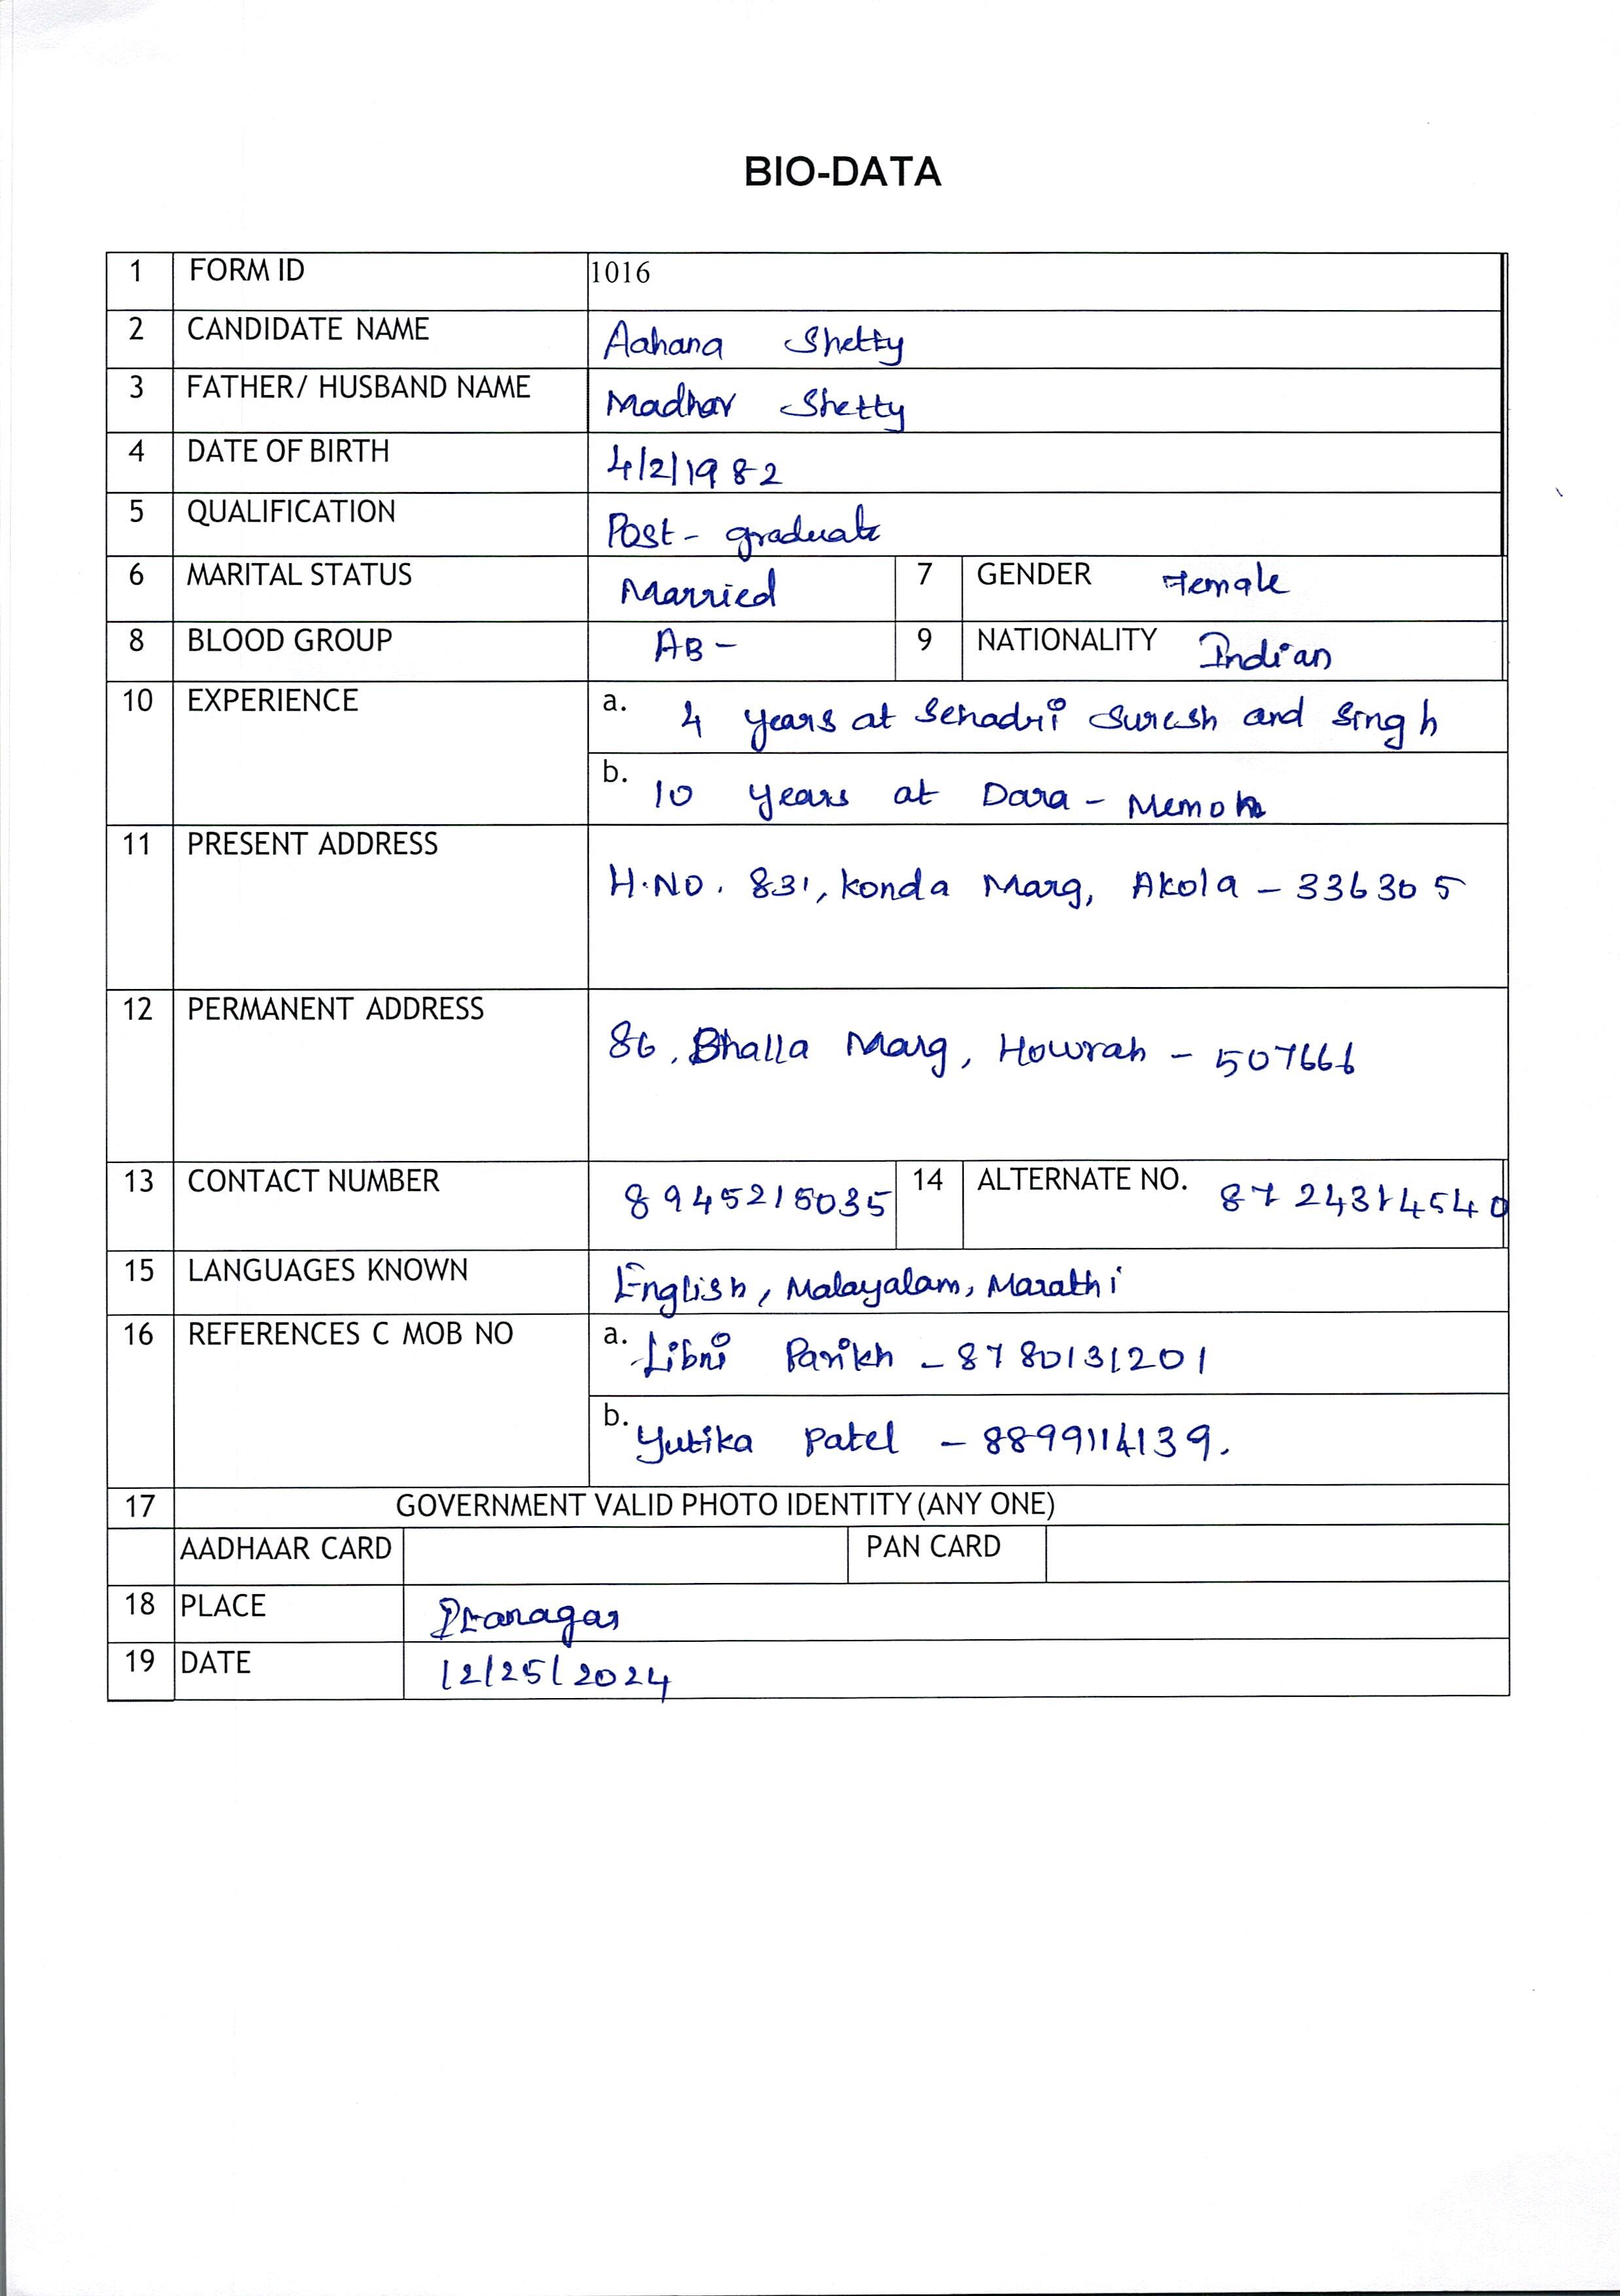 BIO-DATA
1 FORM ID 1016
2 CANDIDATE NAME Aahana Shetty
3 FATHER/ HUSBAND NAME Madhav Shetty
4 DATE OF BIRTH 4/2/1982
5 QUALIFICATION Post-graduate
6 MARITAL STATUS Married 7 GENDER Female
8 BLOOD GROUP AB- 9 NATIONALITY Indian
10 EXPERIENCE a. 4 years at Sehadri Suresh and Singh
b. 10 years at Dara-
11 PRESENT ADDRESS H.NO. 831, Konda Marg, Akola - 336305
12 PERMANENT ADDRESS 86, Bhalla Marg, Howrah - 507666
13 CONTACT NUMBER 8945215035 14 ALTERNATE NO.
15 LANGUAGES KNOWN English, Malayalam, Marathi
16 REFERENCES C MOB NO a. Libni Parikh - 8780131201
b. Yutika Patel - 8899114139.
17 GOVERNMENT VALID PHOTO IDENTITY (ANY ONE)
AADHAAR CARD PAN CARD
18 PLACE
19 DATE 12/25/2024